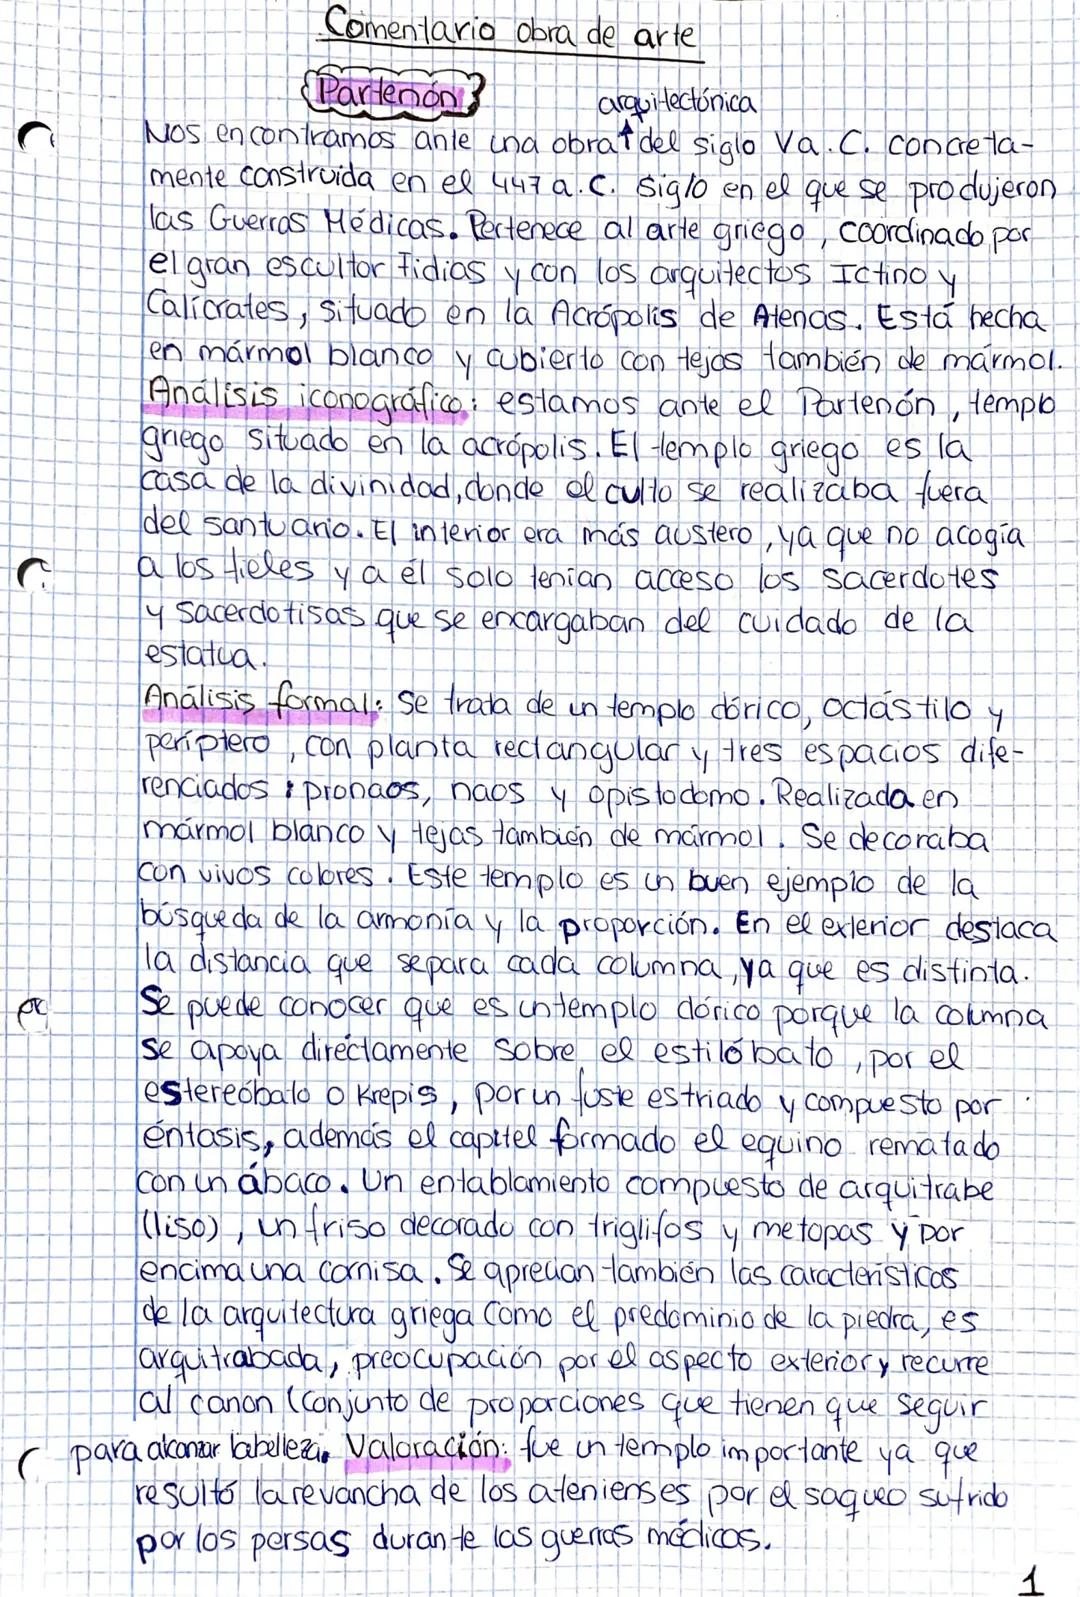 Comentario obra de arte
Partenón
arquitectónica
Nos encontramos ante una obra del siglo V a.C. concreta-
mente construida en el 447 a.C. Siglo en el que se produjeron
las Guerras Médicas. Pertenece al arte griego, coordinado por
el gran escultor Fidias y con los arquitectos Ictino y
Calícrates, situado en la Acrópolis de Atenas. Está hecha
en mármol blanco y cubierto con tejas también de mármol.
Análisis iconográfico: estamos ante el Partenón, templo
griego situado en la acrópolis. El templo griego es la
casa de la divinidad, donde el culto se realizaba fuera
del santuario. El interior era más austero, ya que no acogía
a los fieles y a él solo tenían acceso los sacerdotes
y sacerdotisas que se encargaban del cuidado de la
estatua.
Análisis formal: Se trata de un templo dórico, octástilo y
períptero, con planta rectangular y tres espacios dife-
renciados: pronaos, naos y opistodomo. Realizada en
mármol blanco y tejas también de mármol. Se decoraba
con vivos colores. Este templo es un buen ejemplo de la
búsqueda de la armonía y la proporción. En el exterior destaca
la distancia que separa cada columna, ya que es distinta.
Se puede conocer que es un templo dórico porque la columna
se apoya directamente sobre el estilóbato, por el
estereóbato o Krepis, por un fuste estriado y compuesto por
éntasis, además el capitel formado el equino rematado
con un ábaco. Un entablamiento compuesto de arquitrabe
(liso), un friso decorado con triglifos y metopas y por
encima una cornisa. Se aprecian también las características
de la arquitectura griega como el predominio de la piedra, es
arquitrabada, preocupación por el aspecto exterior y recurre
al canon (conjunto de proporciones que tienen que seguir
para alcanzar la belleza. Valoración: fue un templo importante ya que
resultó la revancha de los atenienses por el saqueo sufrido
por los persas durante las guerras médicas.
1